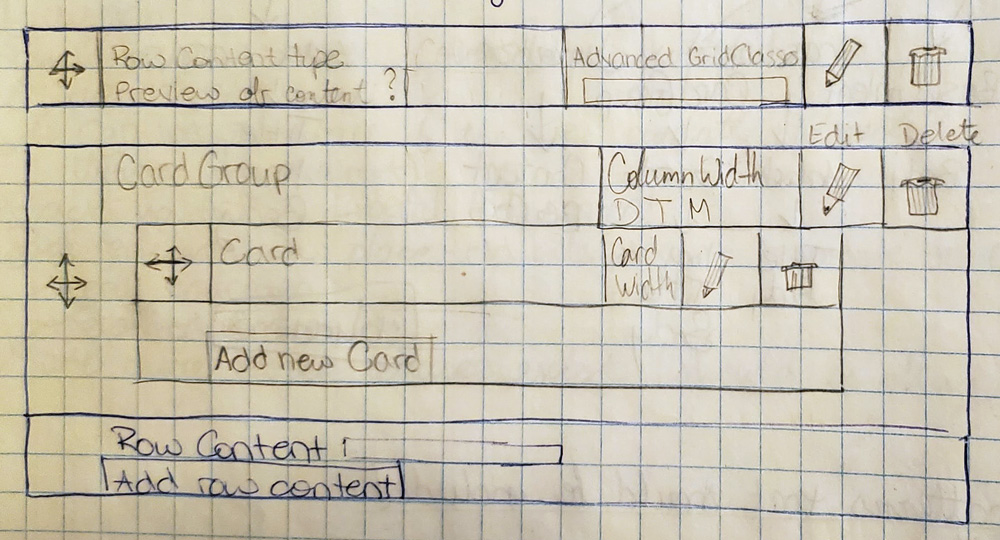 Row Content type
Preview of content ?
Advanced GridClasses
Edit Delete
Card Group
Column Width
D T M
Card
Card
Width
Add new Card
Row Content :
Add row content